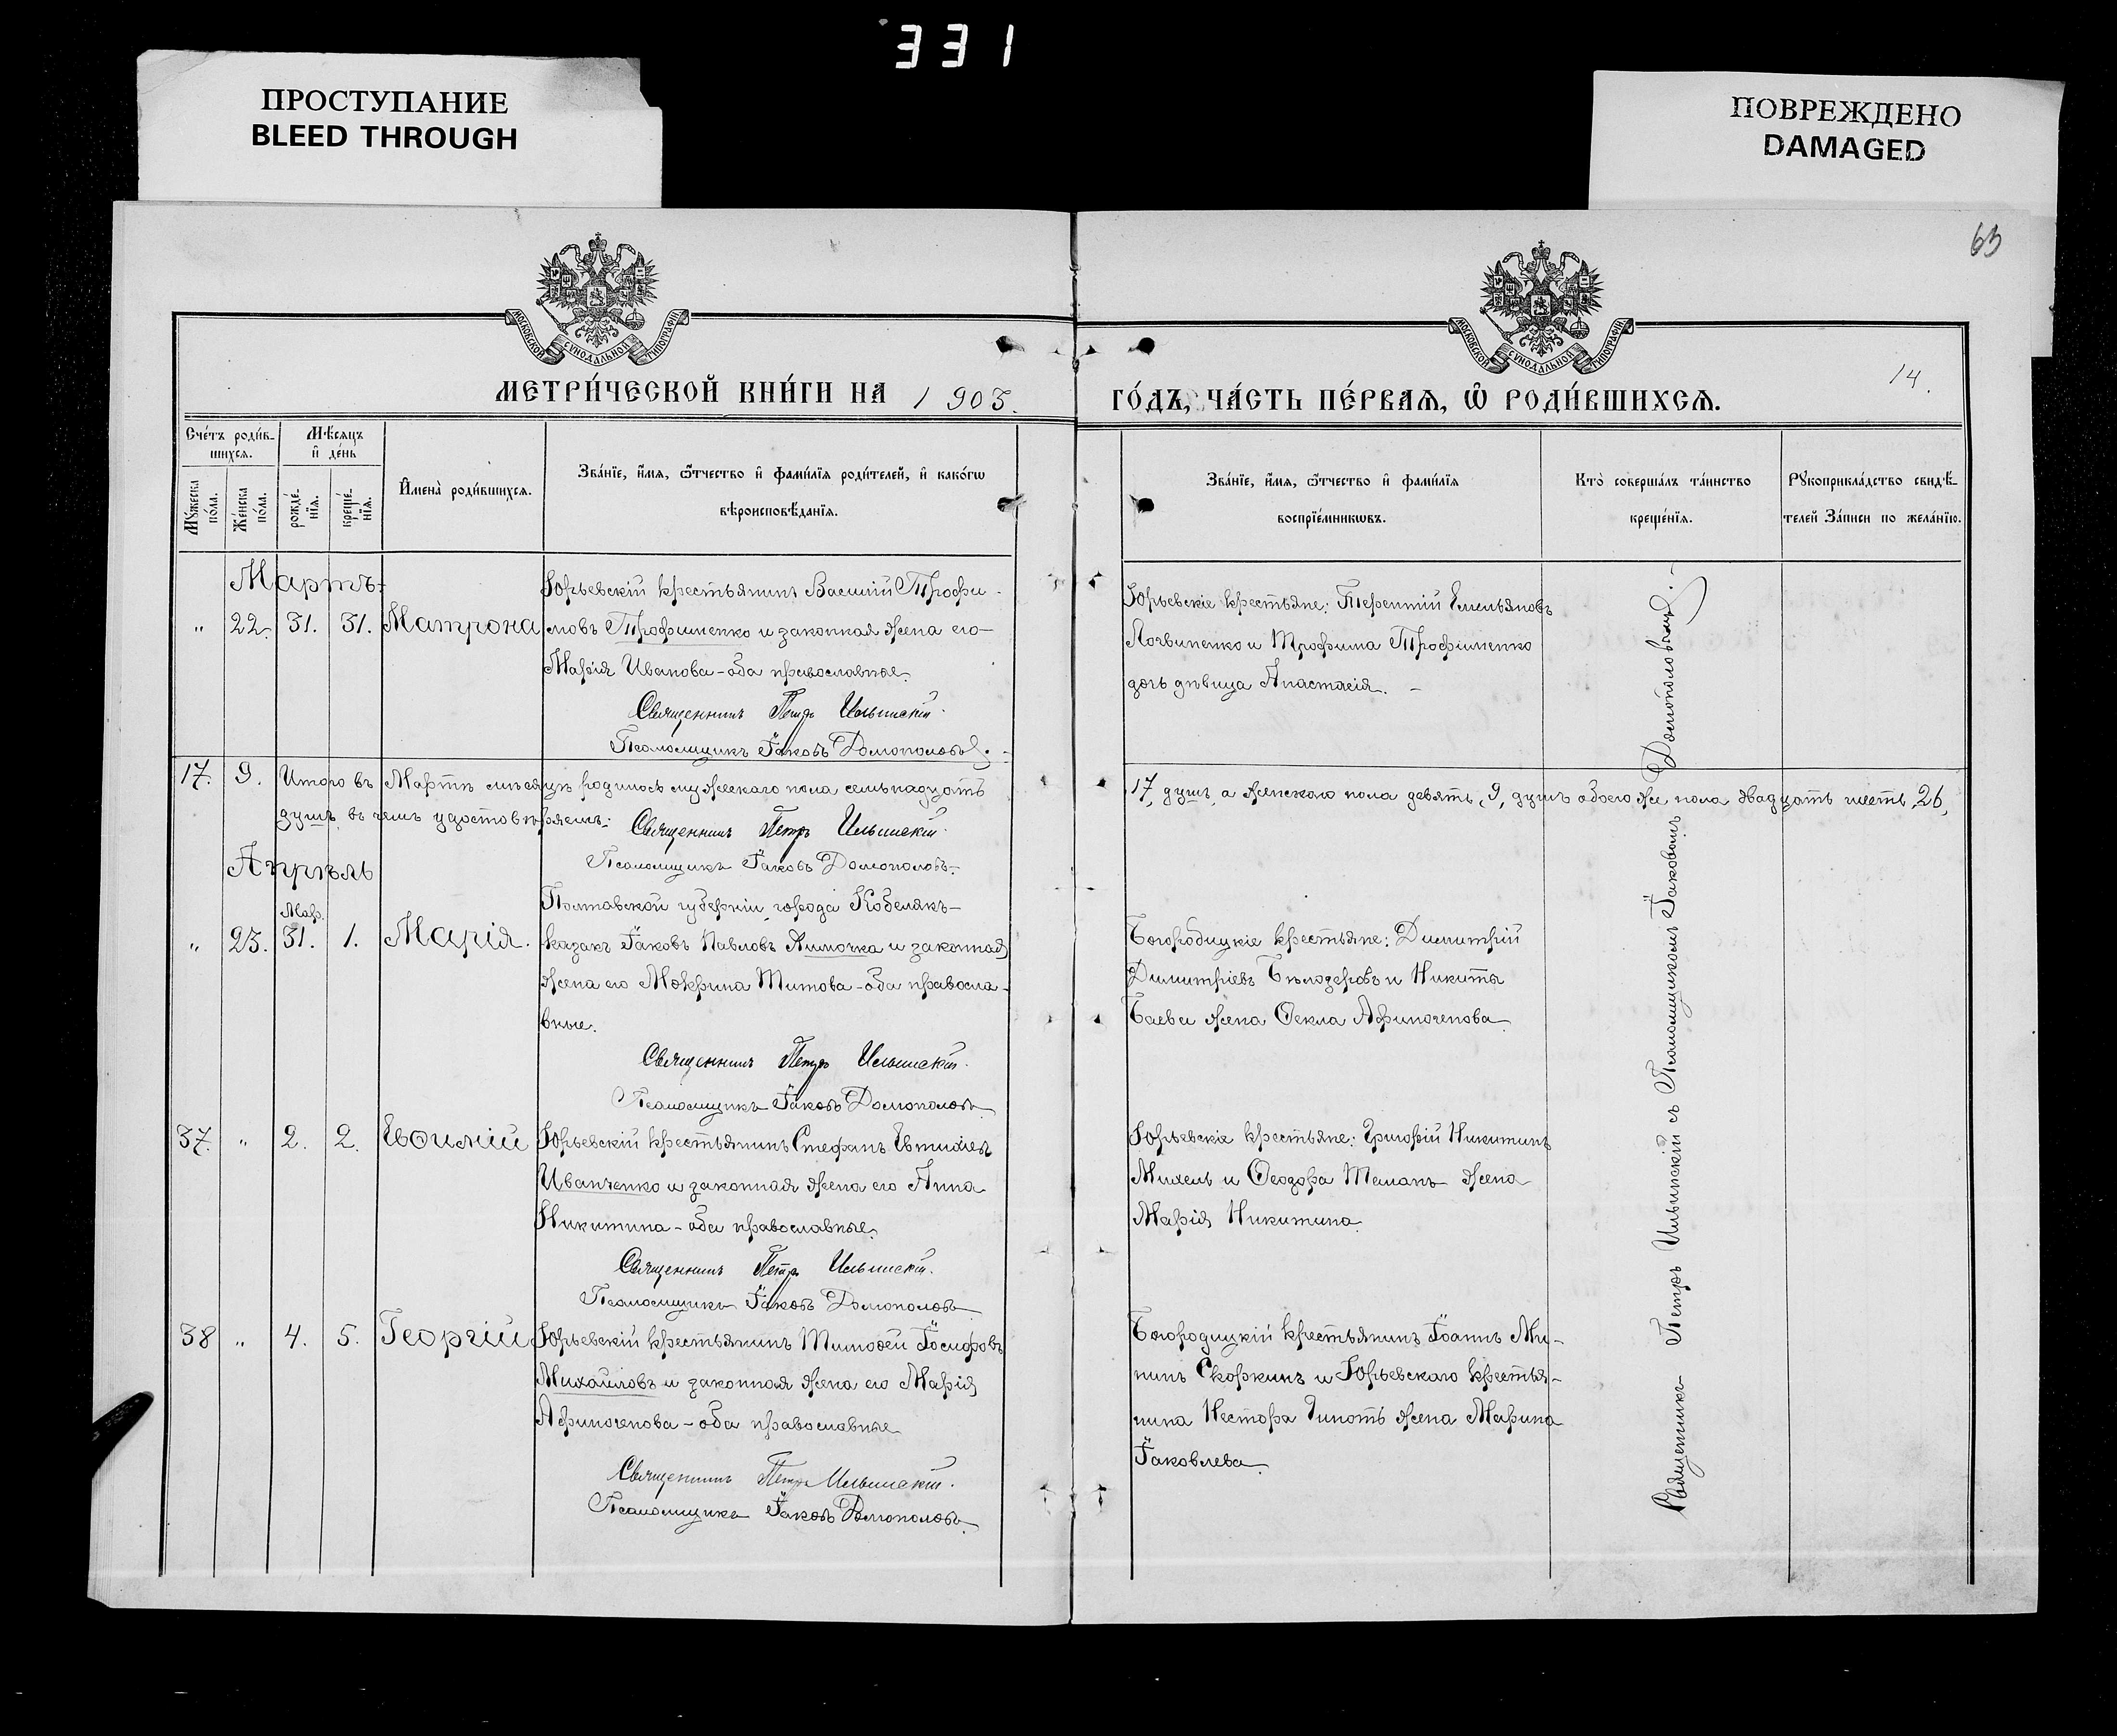 331
ПРОСТУПАНИЕ
BLEED THROUGH
ПОВРЕЖДЕНО
DAMAGED
63
МОСКОВСКОЙ СѴНОДАЛЬНОЙ ТИПОГРАФІИ
МОСКОВСКОЙ СѴНОДАЛЬНОЙ ТИПОГРАФІИ
14.
МЕТРИ́ЧЕСКОЙ КНИ́ГИ НА 1903.
ГО́ДЪ, ЧА́СТЬ ПЕ́РВАѦ, Ѡ҆ РОДИ́ВШИХСѦ.
Сче́тъ роди́в-
шихсѧ.
Мѣ́сѧцъ
и҆ де́нь
Мꙋ́жеска по́ла.
Же́нска по́ла.
рожде́-нїѧ.
креще́-нїѧ.
И҆мена̀ роди́вшихсѧ.
Зва́нїе, и҆́мѧ, ѻ҆́тчество и҆ фами́лїѧ роди́телей, и҆ како́гѡ
вѣроисповѣ́данїѧ.
Зва́нїе, и҆́мѧ, ѻ҆́тчество и҆ фами́лїѧ
воспрїе́мникѡвъ.
Кто̀ соверша́лъ та́инство
креще́нїѧ.
Рꙋкоприкла́дство свидѣ́-
телей за́писи по жела́нїю.
Мартъ
" 22. 31. 31. Матрона
Юрьевскій крестьянинъ Василій Трофи-
мовъ Трофименко и законная жена его
Марія Иванова - оба православные.
Священникъ Петръ Ильинскій.
Псаломщикъ Іаковъ Домополовъ.
Юрьевскіе крестьяне: Терентій Емельяновъ
Логвиненко и Трофима Трофименко
дочь дѣвица Анастасія.
17. 9. Итого въ Мартѣ мѣсяцѣ родилось мужескаго пола семьнадцать
17, душъ, а женскаго пола девять, 9, душъ обоего же пола двадцать шесть 26,
душъ, въ чемъ удостовѣряемъ:
Священникъ Петръ Ильинскій.
Псаломщикъ Іаковъ Домополовъ.
Апрѣль
" 23. Мар. 31. 1. Марія.
Полтавской губерніи, города Кобелякъ
казакъ Іаковъ Павловъ Ямпочка и законная
жена его Мокрина Титова - оба правосла-
вные.
Священникъ Петръ Ильинскій.
Псаломщикъ Іаковъ Домополовъ
Богородицкіе крестьяне: Димитрій
Димитріевъ Бѣлодеровъ и Никиты
Баева жена Ѳекла Афиногенова
37. " 2. 2. Евѳимій
Юрьевскій крестьянинъ Стефанъ
Иванченко и законная жена его Анна
Никитина - оба православные.
Священникъ Петръ Ильинскій.
Псаломщикъ Іаковъ Домополовъ
Юрьевскіе крестьяне: Григорій Никитинъ
Михель и Ѳеодора жена
Марія Никитина.
38 " 4. 5. Георгій
Юрьевскій крестьянинъ Тимоѳей Іосифовъ
Михайловъ и законная жена его Марія
Афиногенова - оба православные
Священникъ Петръ Ильинскій.
Псаломщикъ Іаковъ Домополовъ.
Богородицкій крестьянинъ Іоаннъ Ми-
нинъ Скоркинъ и Юрьевскаго крестья-
нина Нестора жена Марина
Іаковлева.
Священникъ Петръ Ильинскій съ Псаломщикомъ Іаковомъ Домополовымъ.